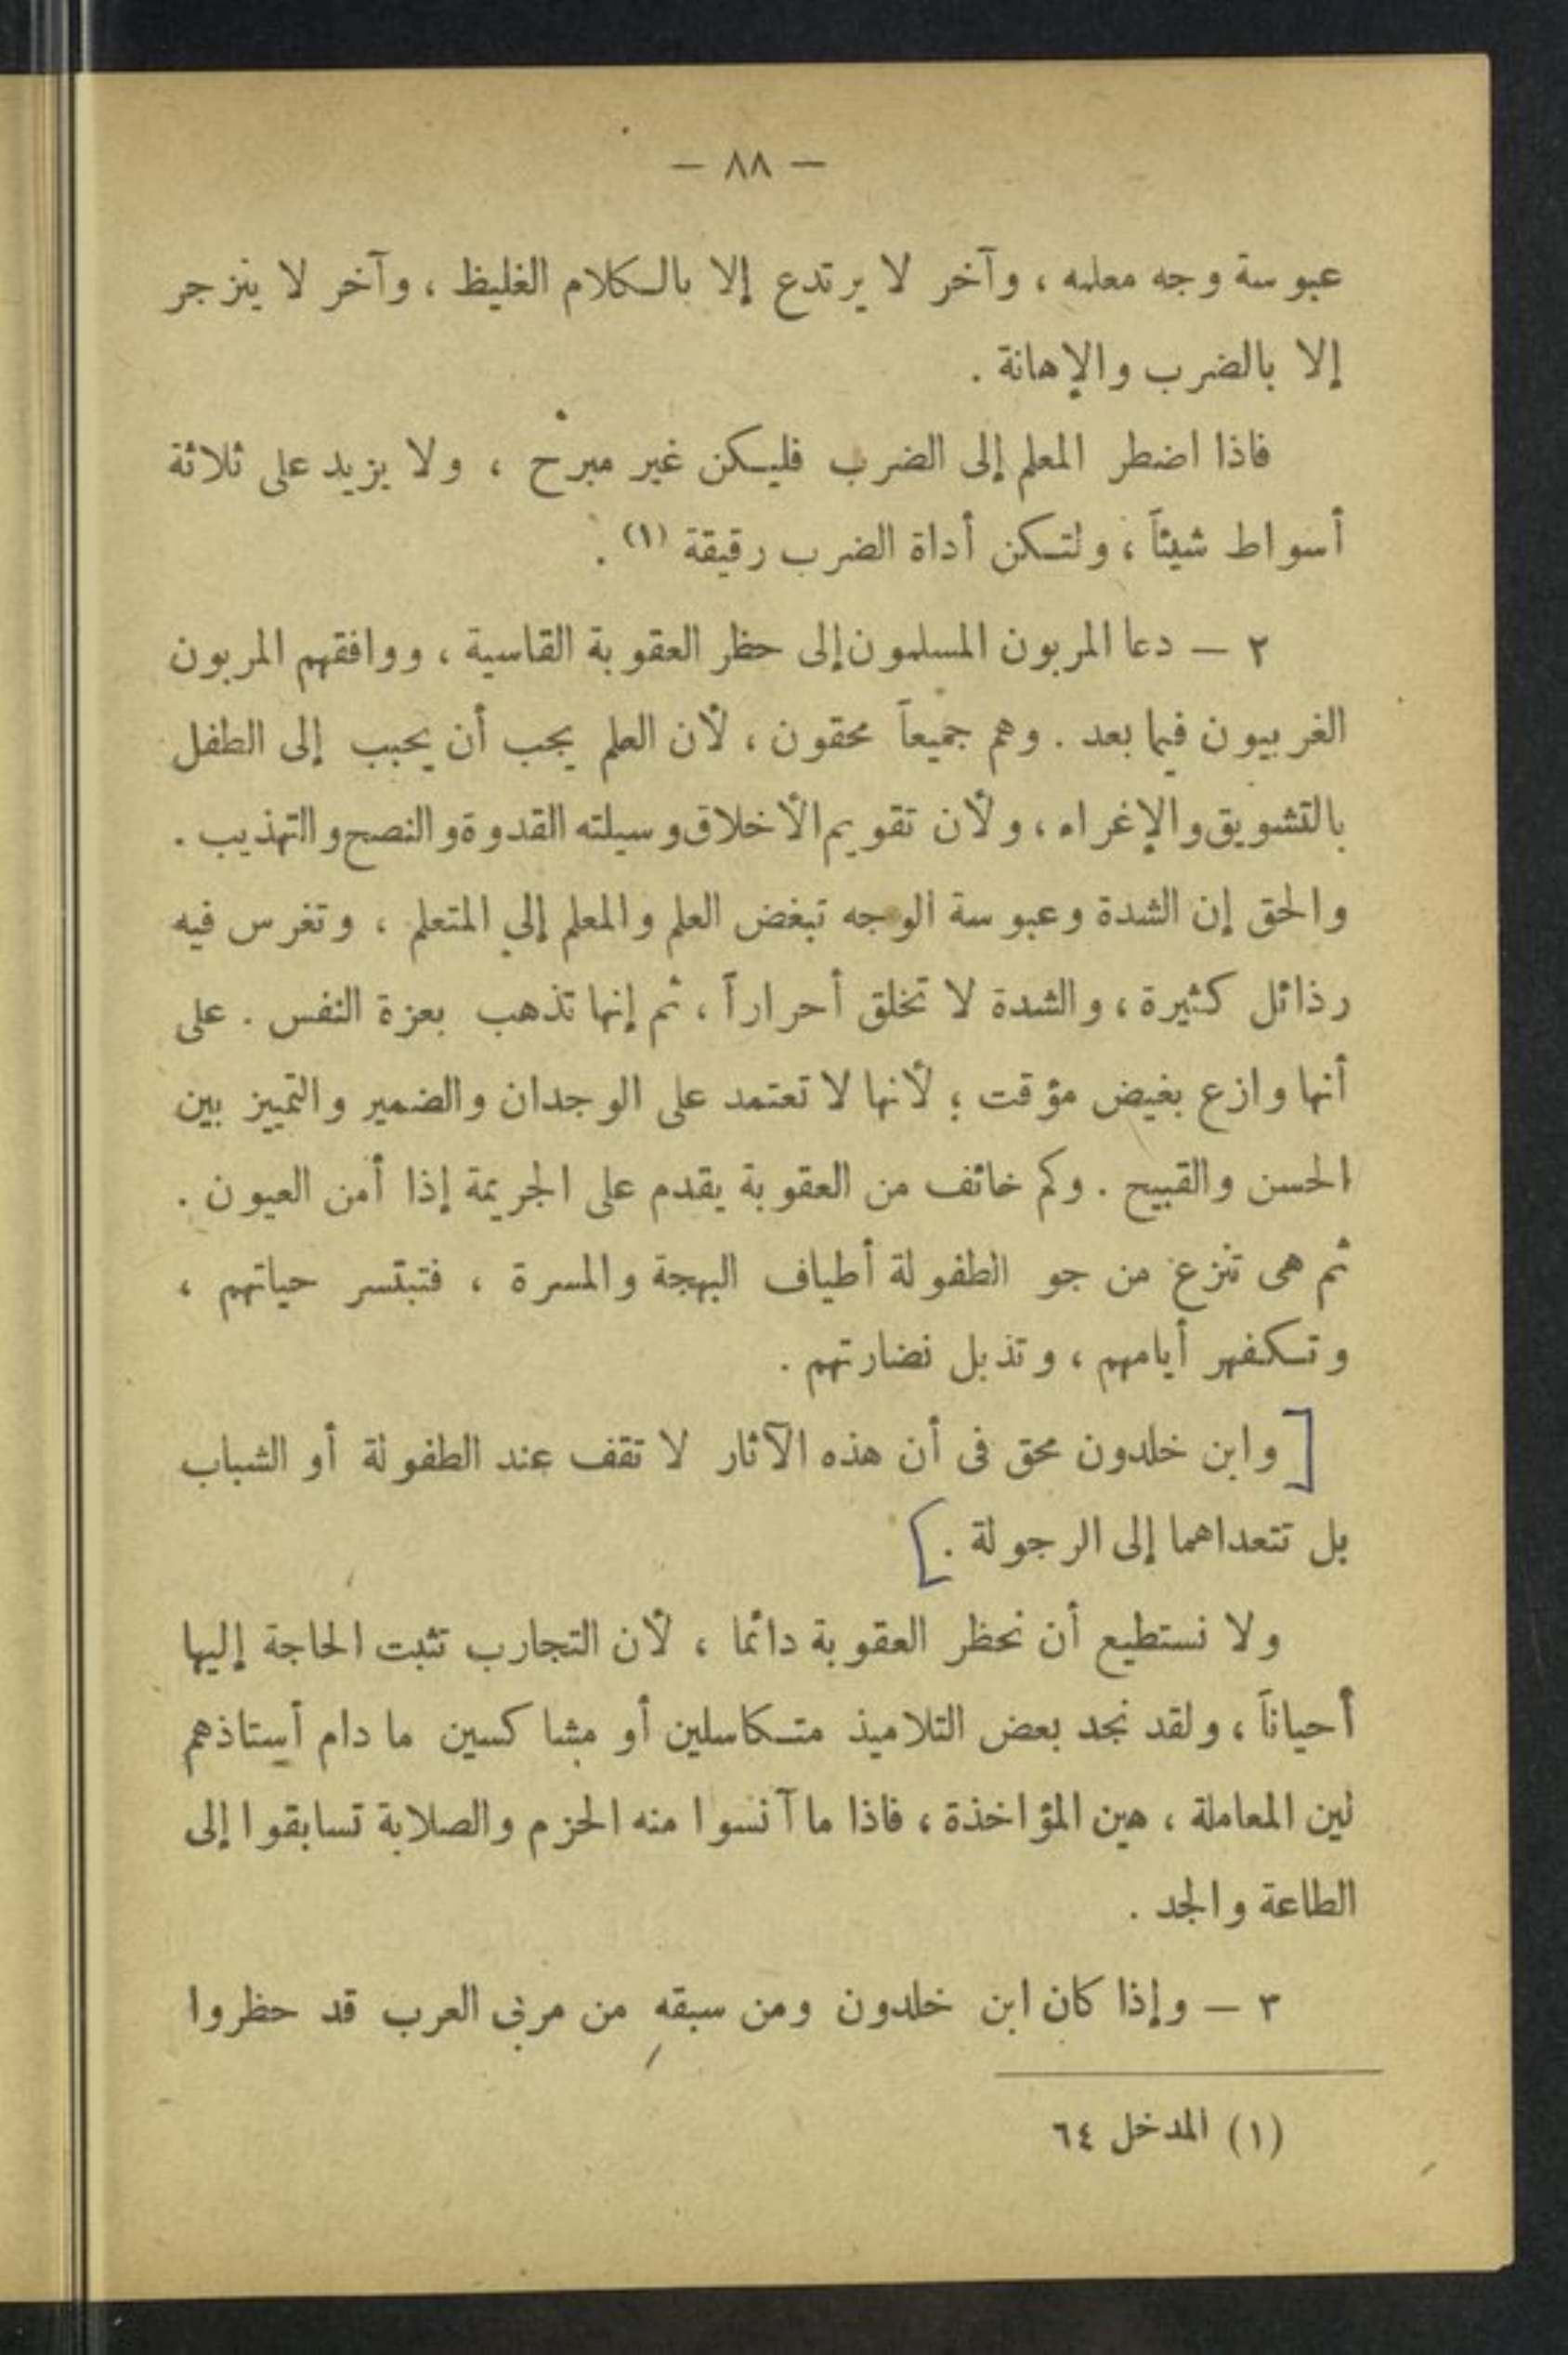 — ٨٨ —
عبوسة وجه معلمه ، وآخر لا يرتدع إلا بالكلام الغليظ ، وآخر لا ينزجر
إلا بالضرب والإهانة .
فاذا اضطر المعلم إلى الضرب فليكن غير مبرح ، ولا يزيد على ثلاثة
أسواط شيئاً ، ولتكن أداة الضرب رقيقة (١) .
٢ — دعا المربون المسلمون إلى حظر العقوبة القاسية ، ووافقهم المربون
الغربيون فيما بعد . وهم جميعاً محقون ، لأن العلم يجب أن يحبب إلى الطفل
بالتشويق والإغراء ، ولأن تقويم الأخلاق وسيلته القدوة والنصح والتهذيب .
والحق إن الشدة وعبوسة الوجه تبغض العلم والمعلم إلي المتعلم ، وتغرس فيه
رذائل كثيرة ، والشدة لا تخلق أحراراً ، ثم إنها تذهب بعزة النفس . على
أنها وازع بغيض مؤقت ؛ لأنها لا تعتمد على الوجدان والضمير والتمييز بين
الحسن والقبيح . وكم خائف من العقوبة يقدم على الجريمة إذا أمن العيون .
ثم هى تنزع من جو الطفولة أطياف البهجة والمسرة ، فتبتسر حياتهم ،
وتكفهر أيامهم ، وتذبل نضارتهم .
[ وابن خلدون محق فى أن هذه الآثار لا تقف عند الطفولة أو الشباب
بل تتعداهما إلى الرجولة . ]
ولا نستطيع أن نحظر العقوبة دائما ، لأن التجارب تثبت الحاجة إليها
أحياناً ، ولقد نجد بعض التلاميذ متكاسلين أو مشاكسين ما دام أستاذهم
لين المعاملة ، هين المؤاخذة ، فاذا ما آنسوا منه الحزم والصلابة تسابقوا إلى
الطاعة والجد .
٣ — وإذا كان ابن خلدون ومن سبقه من مربى العرب قد حظروا
(١) المدخل ٦٤